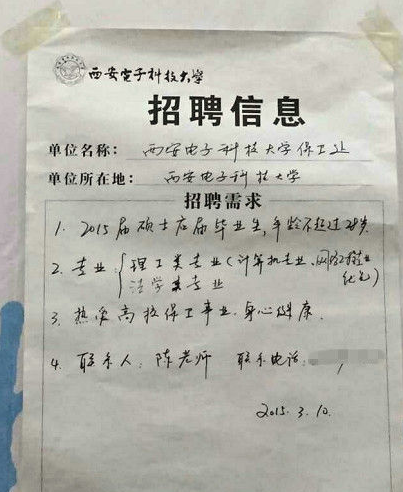 西安电子科技大学
招聘信息
单位名称: 西安电子科技大学保卫处
单位所在地: 西安电子科技大学
招聘需求
1. 2015届硕士应届毕业生,年龄不超过28岁
2. 专业: 理工类专业(计算机专业、网络专业
优先)
法学类专业
3. 热爱高校保卫事业,身心健康.
4. 联系人: 陈老师 联系电话:
2015.3.10.